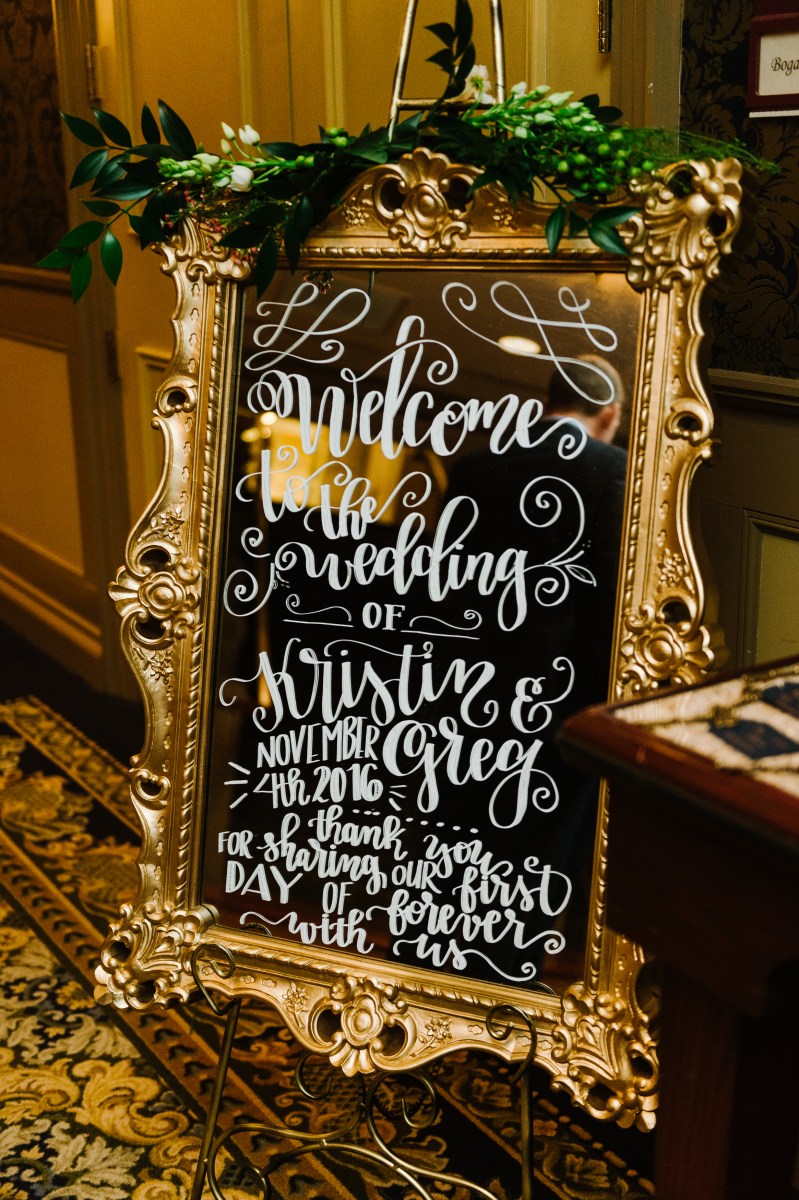 Welcome
to the
wedding
OF
Kristin &
NOVEMBER Greg
4th 2016
thank you
FOR sharing OUR first
DAY OF forever
with us